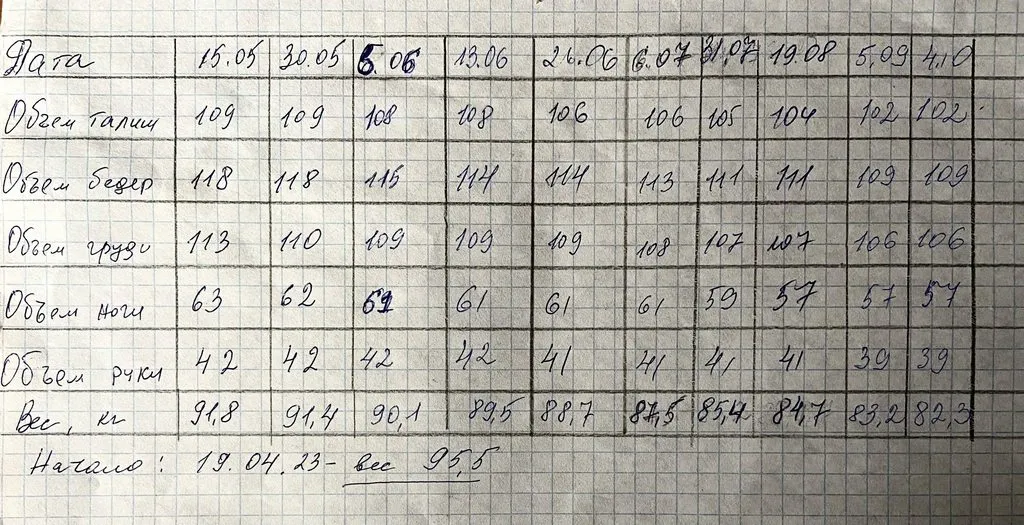 Дата 15.05 30.05 5.06 13.06 26.06 6.07 31.07 19.08 5.09 4.10
Объем талии 109 109 108 108 106 106 105 104 102 102
Объем бедер 118 118 115 114 114 113 111 111 109 109
Объем груди 113 110 109 109 109 108 107 107 106 106
Объем ноги 63 62 61 61 61 59 57 57 57
Объем руки 42 42 42 42 41 41 41 41 39 39
Вес, кг 91,8 91,4 90,1 89,5 88,7 87,5 85,4 84,7 83,2 82,3
Начало: 19.04.23 - вес 95,5